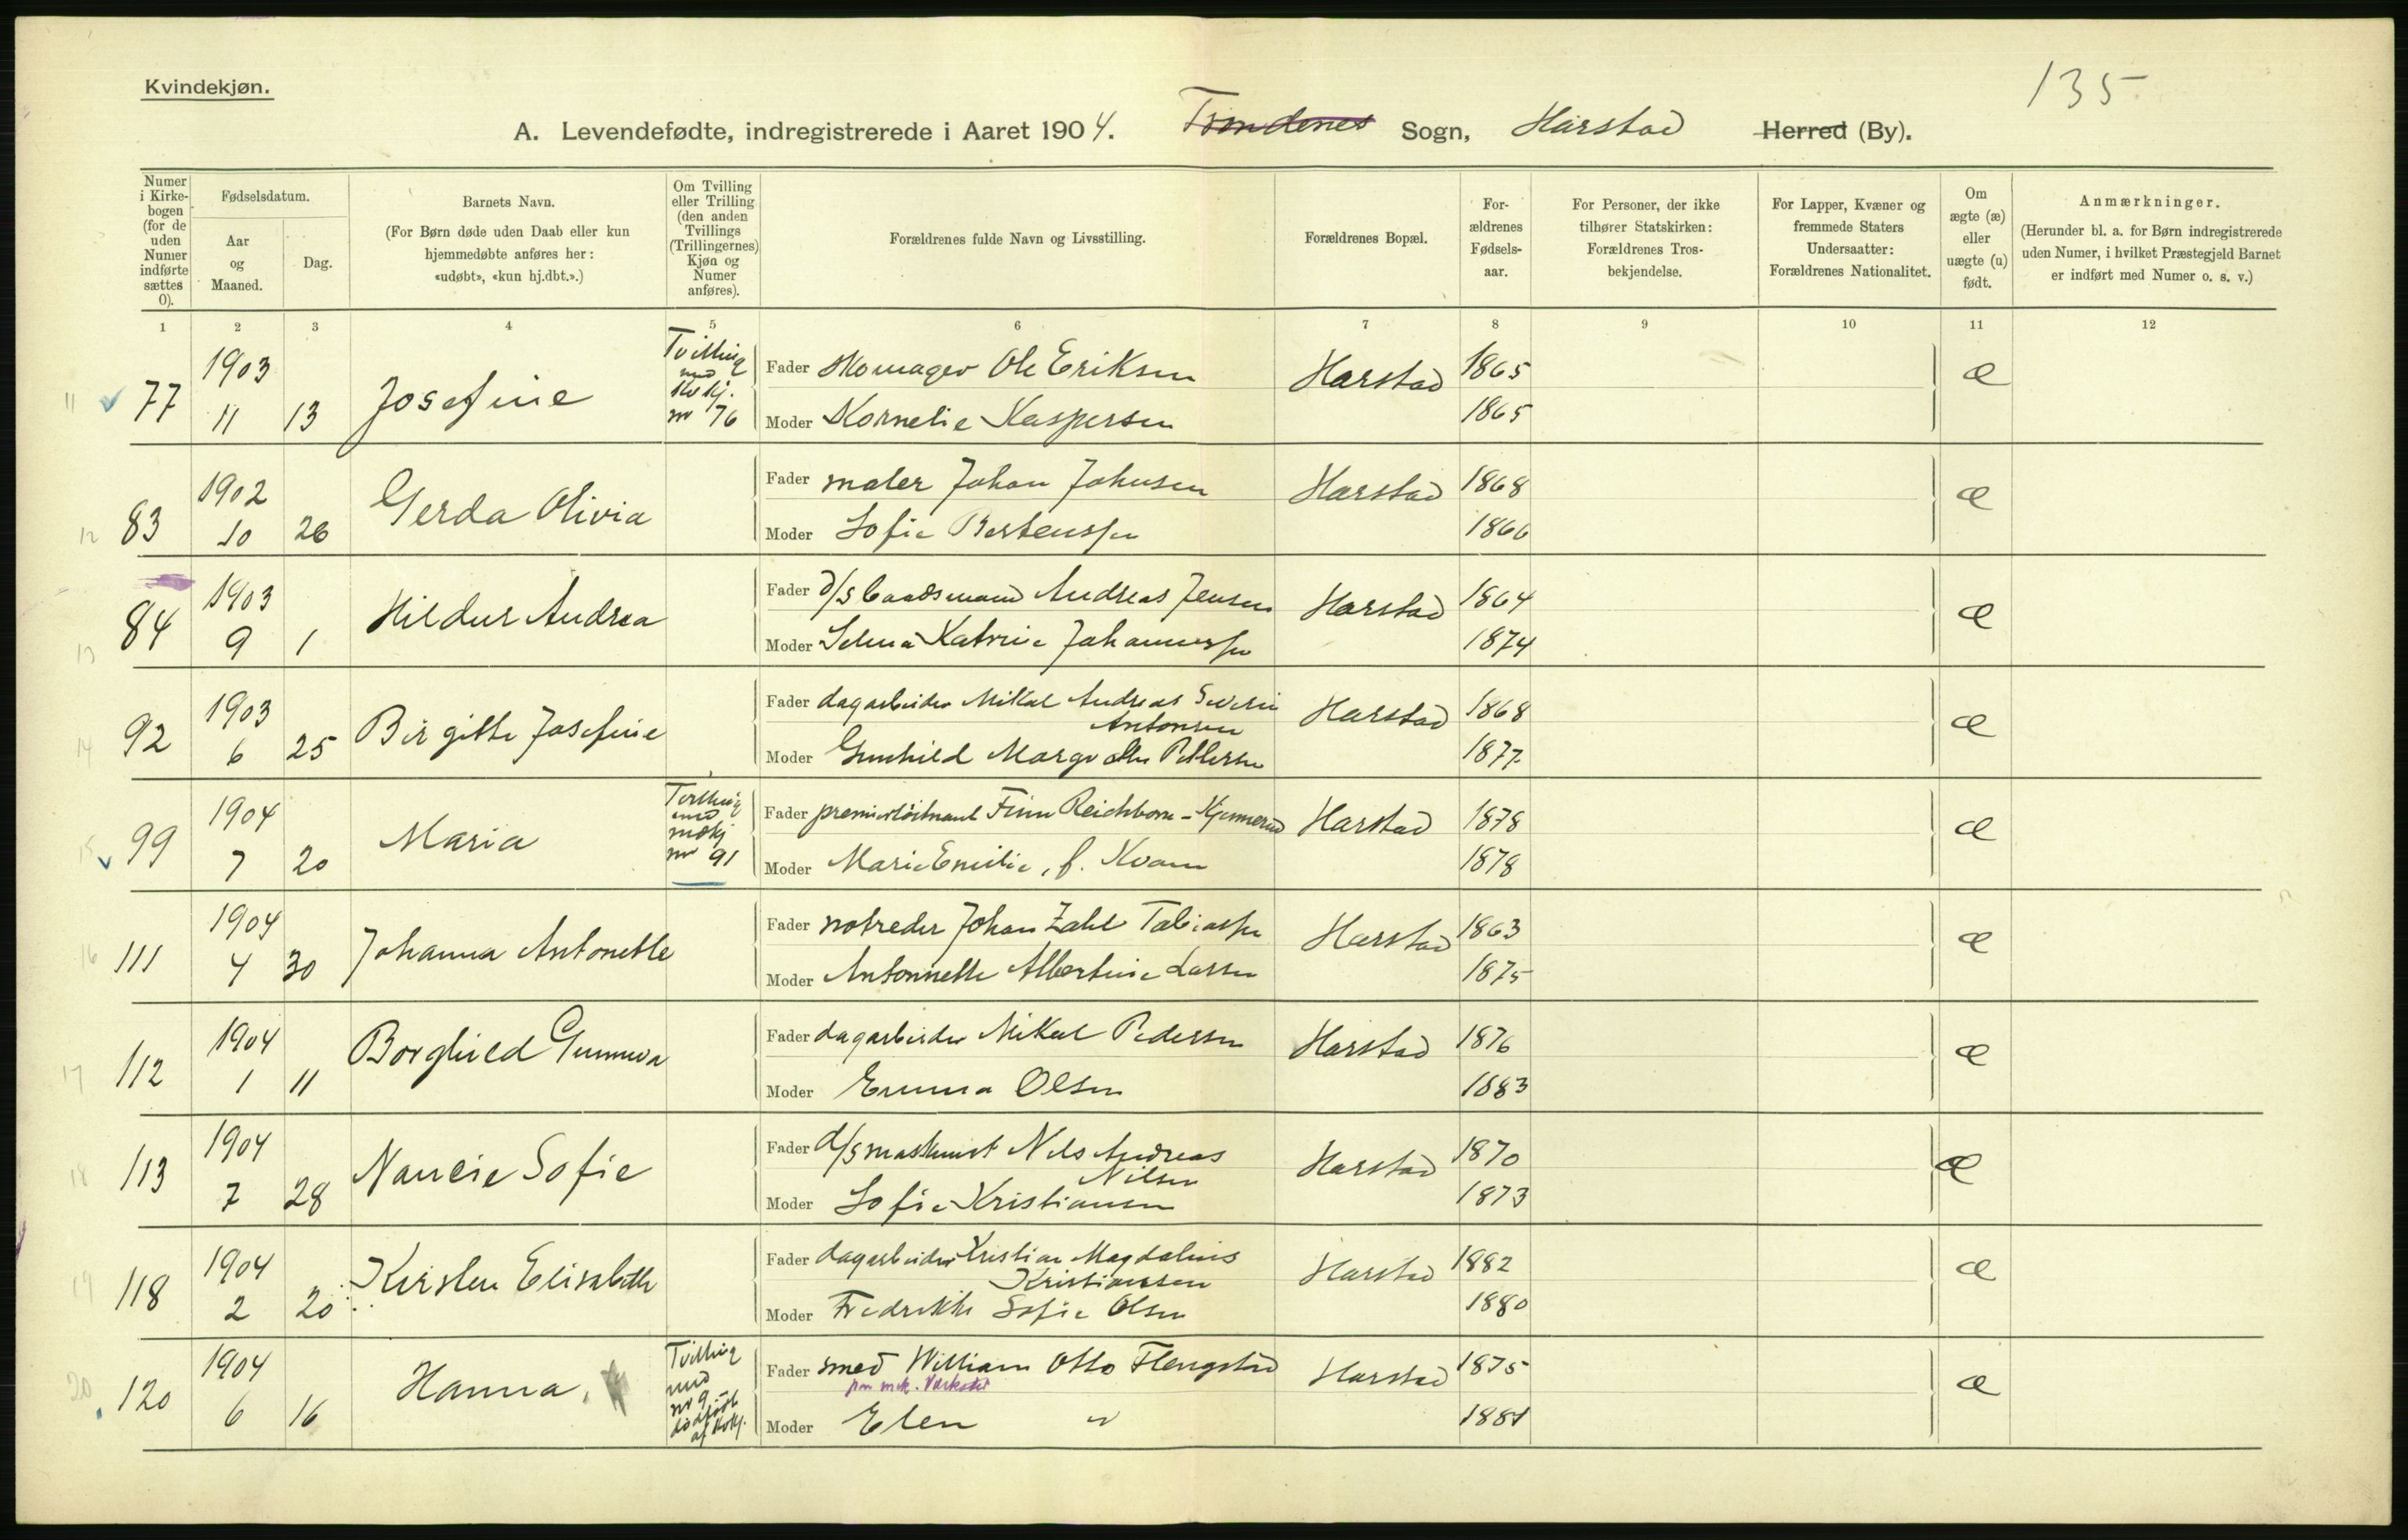 Kvindekjøn.
135
A. Levendefødte, indregistrerede i Aaret 1904. Trondenes Sogn, Harstad Herred (By).
Numer i Kirkebogen (for de uden Numer indførte sættes 0).
Fødselsdatum.
Aar og Maaned.
Dag.
Barnets Navn.
(For Børn døde uden Daab eller kun hjemmedøbte anføres her: «udøbt», «kun hj.dbt.».)
Om Tvilling eller Trilling (den anden Tvillings (Trillingernes) Kjøn og Numer anføres).
Forældrenes fulde Navn og Livsstilling.
Forældrenes Bopæl.
Forældrenes Fødselsaar.
For Personer, der ikke tilhører Statskirken: Forældrenes Trosbekjendelse.
For Lapper, Kvæner og fremmede Staters Undersaatter: Forældrenes Nationalitet.
Om ægte (æ) eller uægte (u) født.
Anmærkninger.
(Herunder bl. a. for Børn indregistrerede uden Numer, i hvilket Præstegjeld Barnet er indført med Numer o. s. v.)
1 2 3 4 5 6 7 8 9 10 11 12
11 77 1903 11 13 Josefine Tvilling med kvkj. nr 76
Fader skomager Ole Eriksen Harstad 1865 æ
Moder Kornelie Kaspersen 1865
12 83 1902 10 26 Gerda Olivia
Fader maler Johan Johnsen Harstad 1868 æ
Moder Sofie 1866
13 84 1903 9 1 Hildur Andrea
Fader d/s baadsmand Andreas Jensen Harstad 1864 æ
Moder Selma Katrine Johannessen 1874
14 92 1903 6 25 Birgitte Josefine
Fader dagarbeider Mikal Andreas Severin Antonsen Harstad 1868 æ
Moder Gunhild Margrethe Pettersen 1877
15 99 1904 7 20 Maria Tvilling med mdkj nr 91
Fader premierløitnant Finn Reichborn-Kjennerud Harstad 1878 æ
Moder Marie Emilie, f. Kvam 1878
16 111 1904 4 30 Johanna Antonette
Fader notreder Johan Zahl Tobiassen Harstad 1863 æ
Moder Antonnette Albertine Larsen 1875
17 112 1904 1 11 Borghild Gunnva
Fader dagarbeider Mikal Pedersen Harstad 1876 æ
Moder Emma Olsen 1883
18 113 1904 7 28 Nancie Sofie
Fader d/s maskinist Nils Andreas Nilsen Harstad 1870 æ
Moder Sofie Kristiansen 1873
19 118 1904 2 20 Kirsten Elisabeth
Fader dagarbeider Kristian Magdalius Kristiansen Harstad 1882 æ
Moder Fredrikke Sofie Olsen 1880
20 120 1904 6 16 Hanna, Tvilling med nr 9 dødfødt af kvkj.
Fader smed William Otto Flengstad Harstad 1875 æ
paa mek. Værksted
Moder Elen " 1881